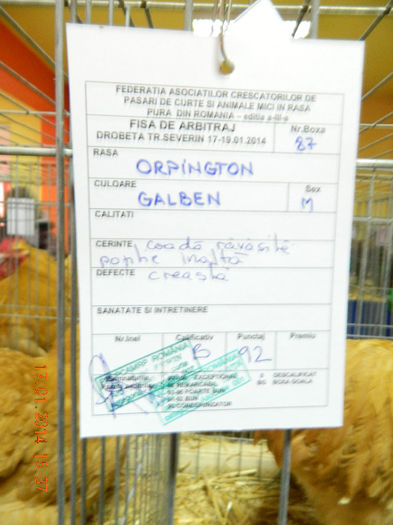 FEDERATIA ASOCIATILOR CRESCATORILOR DE
PASARI DE CURTE SI ANIMALE MICI IN RASA
PURA DIN ROMANIA – editia a-III-a
FISA DE ARBITRAJ
DROBETA TR.SEVERIN 17-19.01.2014
Nr.Boxa
87
RASA
ORPINGTON
CULOARE
GALBEN
Sex
M
CALITATI
CERINTE coadă răvăsită
înaltă
DEFECTE creastă
SANATATE SI INTRETINERE
Nr.Inel Calificativ Punctaj Premiu
B 92
ROMANIA
EXCEPTIONAL
DESCALIFICAT
BOXA GOALA
17.01.2014